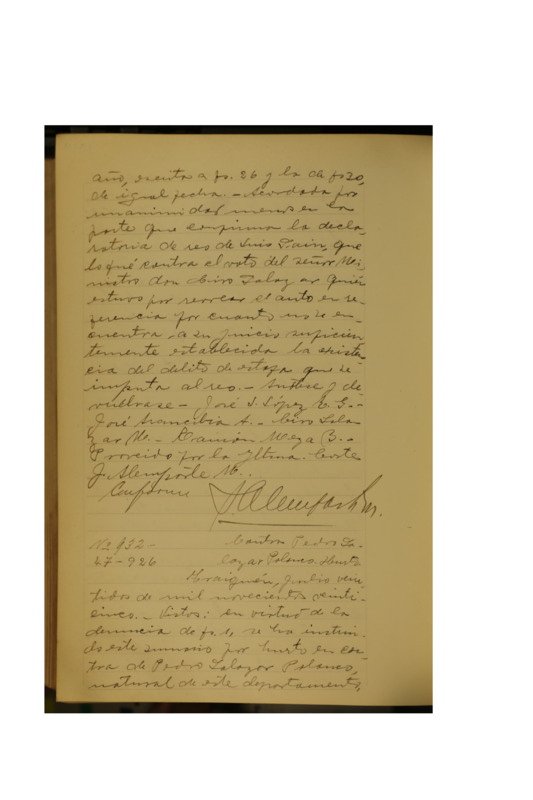 año, escrita a fs. 26 y la de fs 30,
de igual fecha. - Acordada por
unanimidad menos en la
parte que confirma la decla-
ratoria de reo de Luis Jain, que
lo fué contra el voto del señor Mi-
nistro don Ciro Salazar quién
estuvo por revocar el auto en re-
ferencia por cuanto no se en-
cuentra a su juicio suficien
temente establecida la existen
cia del delito de estafa que se
imputa al reo. - Anótese y de-
vuélvase - José S. López E. G. -
José Arancibia A. - Ciro Sala-
zar M. - Ramón Meza B. -
Proveido por la Iltma. Corte
J. Alemparte M.
Conforme
No 932 - Contra Pedro Sa-
47-926 lazar Polanco. Hurto
Traiguén, Julio vein-
tidos de mil novecientos veinti-
cinco. - Vistos: en virtud de la
denuncia de fs. 1, se ha instrui-
do este sumario por hurto en con-
tra de Pedro Salazar Polanco,
natural de este departamento,